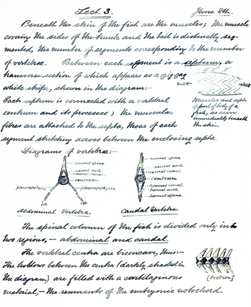 Lect 3. June 8th.
Beneath the skin of the fish are the muscles; the muscle
covering the sides of the trunk and the tail is distinctly seg-
mented, the number of segments corresponding to the number
of vertebrae. Between each segment is a septum, a
transverse section of which appears as a
white stripe, shewn in the diagram.
Each septum is connected with a vertebral
centrum and its processes; the muscular
fibres are attached to the septa, those of each
segment stretching across between the enclosing septa.
Muscles and septa
of part of tail of a
fish, as seen
immediately under
the skin
Diagrams of vertebrae:—
neural spine
neural arch
centrum
Abdominal Vertebra.
neural spine
neural arch
centrum
haemal arch
haemal spine
Caudal Vertebra.
The spinal column of the fish is divided only into
two regions,— abdominal and caudal.
The vertebral centra are biconcave, thus:—
The hollows between the centra (darkly shaded in
the diagram) are filled with a cartilaginous
material,— the remnants of the embryonic notochord.